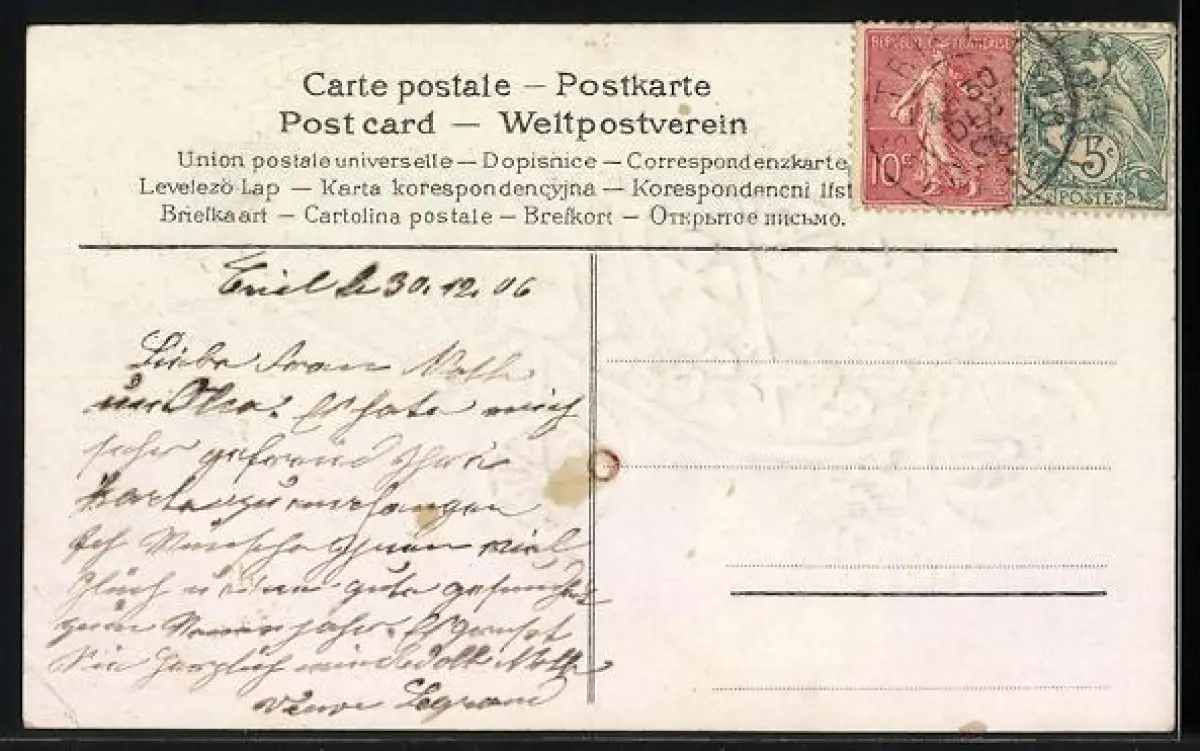 Carte postale — Postkarte
Post card — Weltpostverein
Union postale universelle — Dopisnice — Correspondenzkarte
Levelező Lap — Karta korespondencyjna — Korespondencni list
Briefkaart — Cartolina postale — Brefkort — Открытое письмо.
REPUBLIQUE FRANÇAISE
10c
5c
POSTES
le 30.12.06
Liebe Frau
Es hate mich
sehr gefreud Ihre
Karte zu
Ich Wünsche Ihnen viel
Glück gute
zum jahr. Es grüst
Sie herzlich
Legrand